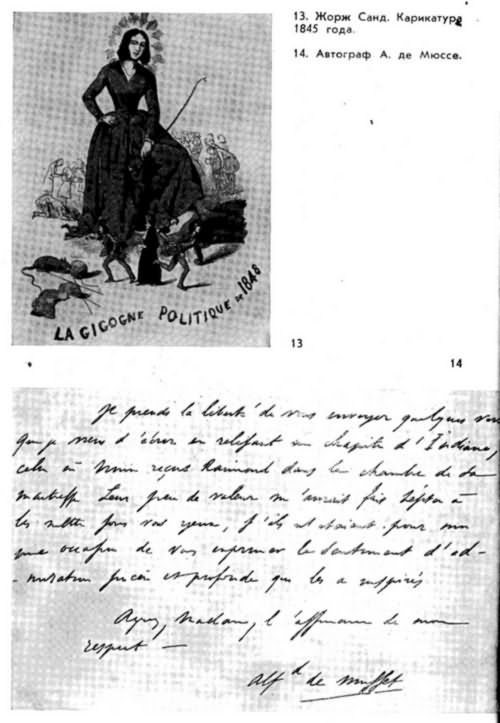 13. Жорж Санд. Карикатура
1845 года.
14. Автограф А. де Мюссе.
LA GIGOGNE POLITIQUE DE 1848
13
14
je prends la liberté de vous envoyer quelques vers
que je viens d'écrire en relisant un chapitre d'Indiana,
celui où Noun reçoit Raimond dans la chambre de sa
maîtresse Leur peu de valeur m'aurait fait hésiter à
les mettre sous vos yeux, s'ils n'étaient pour moi
une occasion de vous exprimer le sentiment d'ad-
-miration sincère et profonde qui les a inspirés
Agréez, Madame, l'assurance de mon
respect —
Alf^d de Musset